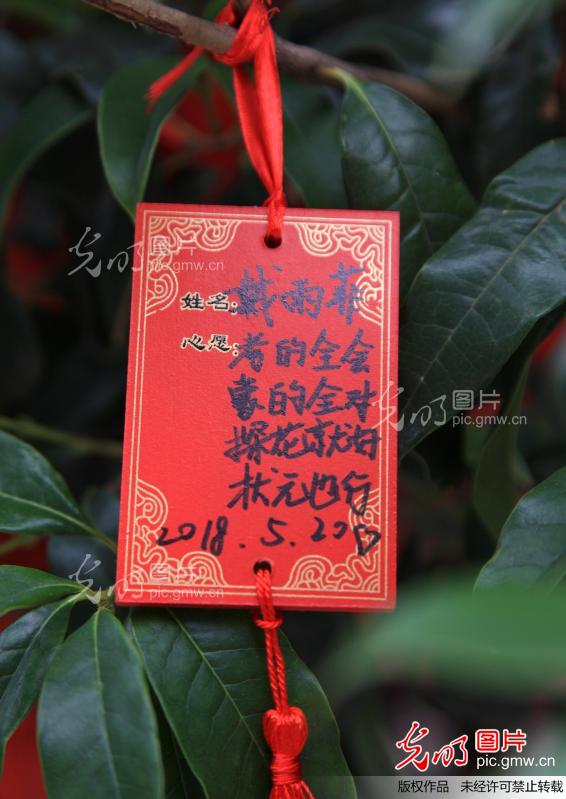 姓名:戴雨菲
心愿:考的全会
蒙的全对
探花就好
状元也行
2018.5.20
光明图片
pic.gmw.cn
光明图片
pic.gmw.cn
光明图片
pic.gmw.cn
光明图片
pic.gmw.cn
版权作品 未经许可禁止转载